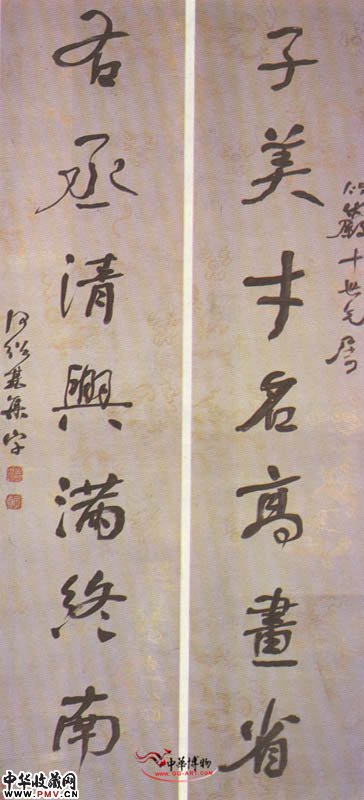 子美才名高畫省
世兄屬
右丞清興滿終南
何紹基集字
中華博物
www.GG-ART.com
中华收藏网
www.PMV.CN